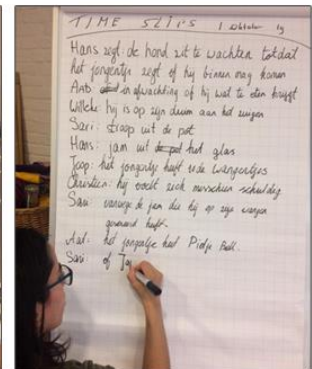 TIME SLIPS 1 oktober 19
Hans zegt: de hond zit te wachten totdat
het jongentje zegt of hij binnen mag komen
Arts in afwachting of hij wat te eten krijgt
Willeke: hij is op zijn duim aan het zuigen
Sari: stroop uit de pot
Hans: jam uit het glas
Joop: het jongentje heeft rode wangetjes
Christien: hij voelt zich misschien schuldig
Sari vanwege de jam die hij op zijn wangen
gesmeerd heeft.
het jongetje heet Pietje Bell.
Sari of